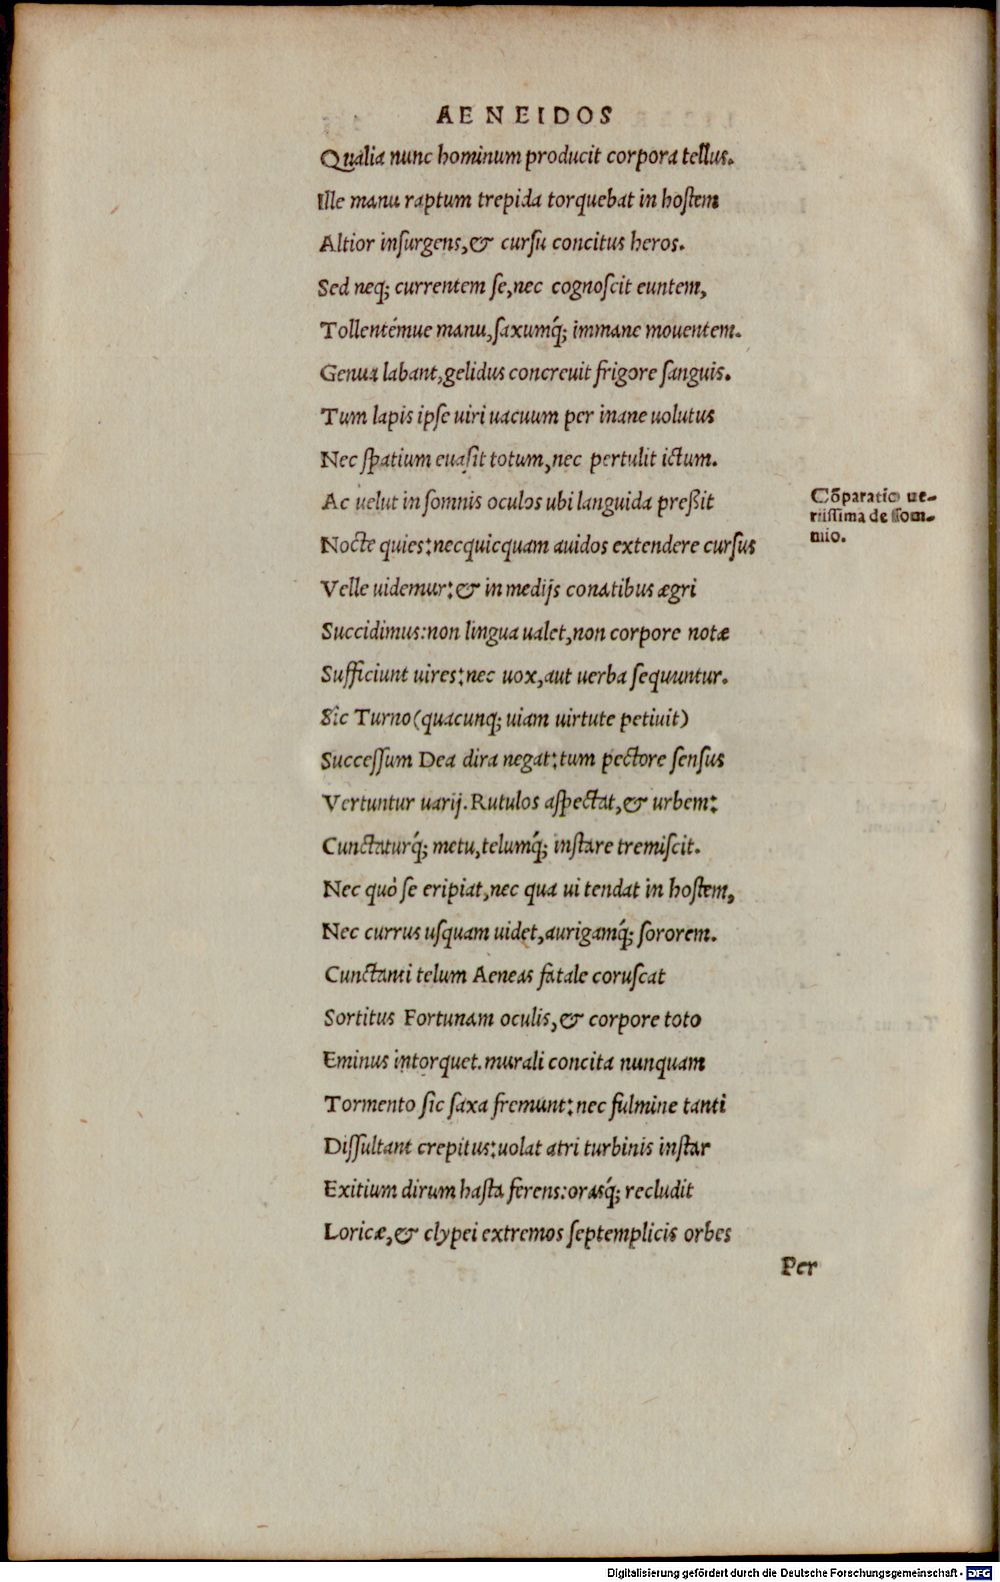 AENEIDOS
Qualia nunc hominum producit corpora tellus.
Ille manu raptum trepida torquebat in hoſtem
Altior inſurgens,& curſu concitus heros.
Sed neq; currentem ſe,nec cognoſcit euntem,
Tollentémue manu,ſaxumq́; immane mouentem.
Genua labant,gelidus concreuit frigore ſanguis.
Tum lapis ipſe uiri uacuum per inane uolutus
Nec ſpatium euaſit totum,nec pertulit ictum.
Ac uelut in ſomnis oculos ubi languida preßit
Cōparatio ue-
riiſſima de ſom-
nio.
Nocte quies:necquicquam auidos extendere curſus
Velle uidemur:& in medijs conatibus ægri
Succidimus:non lingua ualet,non corpore notæ
Sufficiunt uires:nec uox,aut uerba ſequuntur.
Sic Turno(quacunq; uiam uirtute petiuit)
Succeſſum Dea dira negat:tum pectore ſenſus
Vertuntur uarij.Rutulos aſpectat,& urbem:
Cunctaturq́; metu,telumq́; inſtare tremiſcit.
Nec quò ſe eripiat,nec qua ui tendat in hoſtem,
Nec currus uſquam uidet,aurigamq́; ſororem.
Cunctanti telum Aeneas fatale coruſcat
Sortitus Fortunam oculis,& corpore toto
Eminus intorquet.murali concita nunquam
Tormento ſic ſaxa fremunt:nec fulmine tanti
Diſſultant crepitus:uolat atri turbinis inſtar
Exitium dirum haſta ferens:orasq́; recludit
Loricæ,& clypei extremos ſeptemplicis orbes
Per
Digitalisierung gefördert durch die Deutsche Forschungsgemeinschaft - DFG